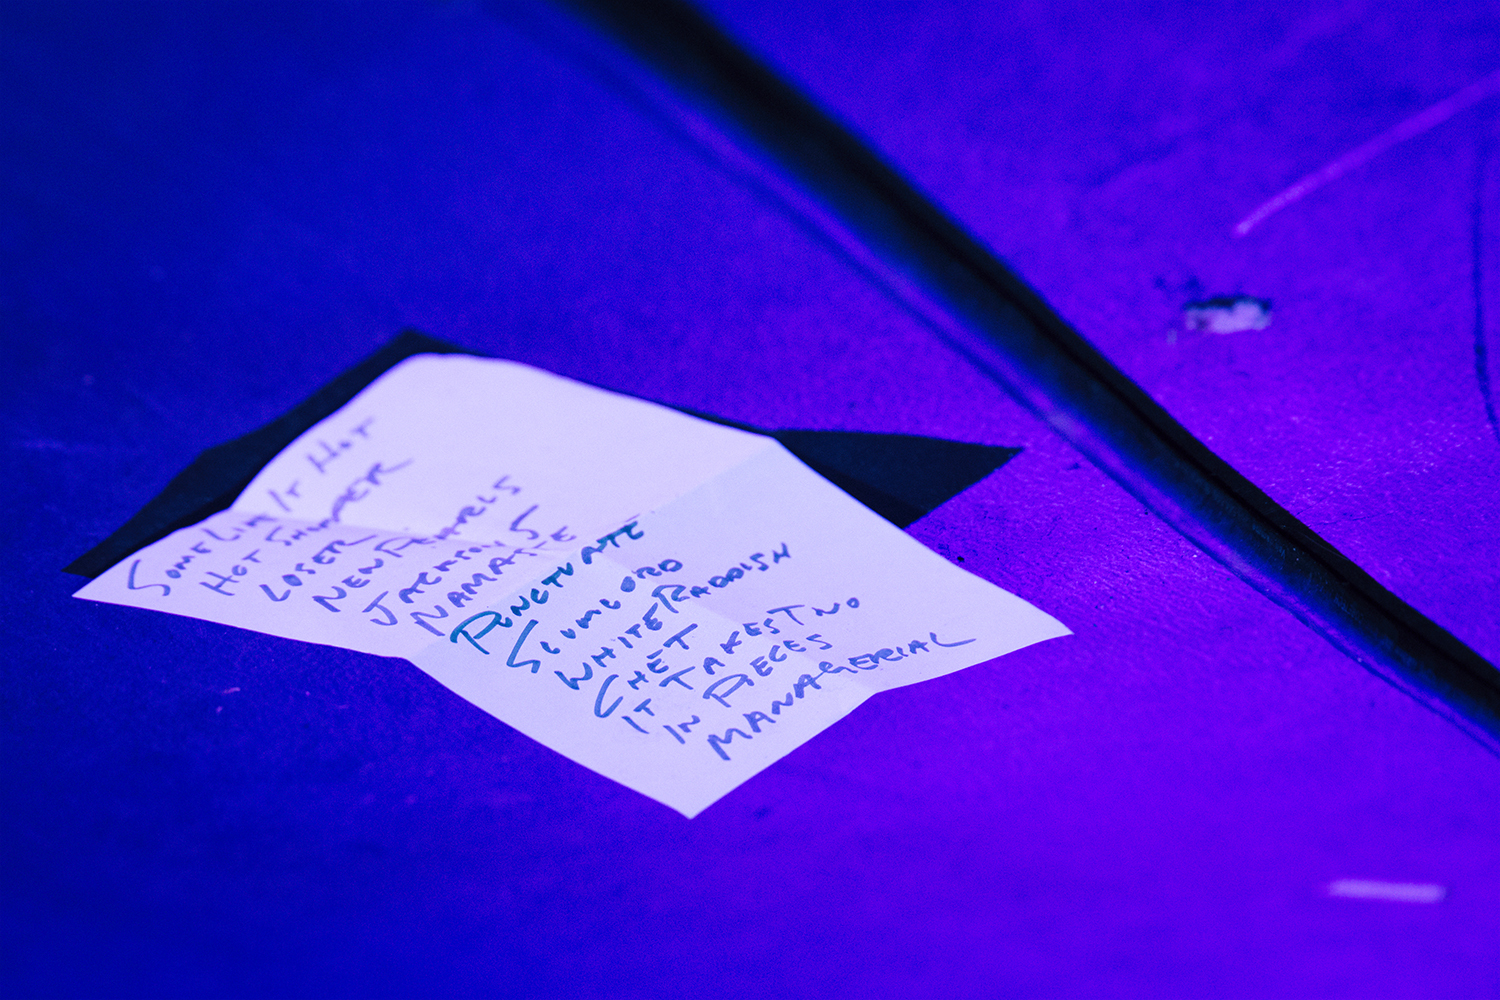 SOME LIKE IT HOT
HOT SHOWER
LOSER
NEANDERTHALS
JACKSON 5
NAMASTE
PUNCTUATE
SCUMLORD
WHITE RADDISH
CHET
IT TAKES TNO
IN PIECES
MANAGERIAL